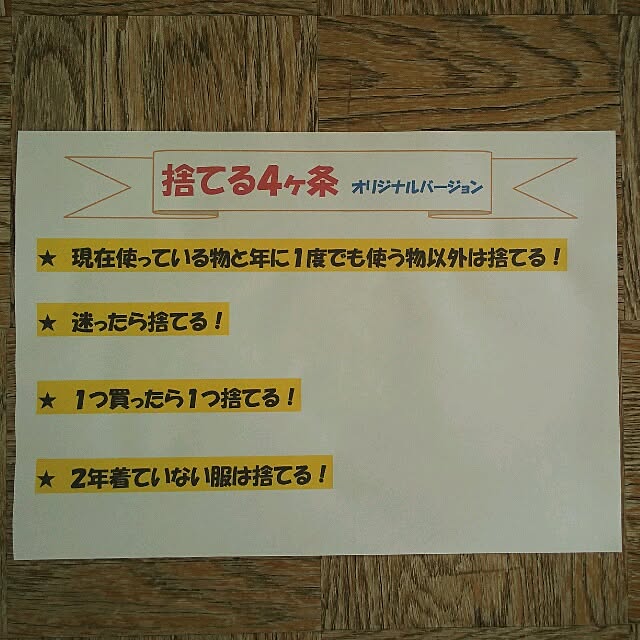 捨てる4ヶ条 オリジナルバージョン
★ 現在使っている物と年に1度でも使う物以外は捨てる!
★ 迷ったら捨てる!
★ 1つ買ったら1つ捨てる!
★ 2年着ていない服は捨てる!